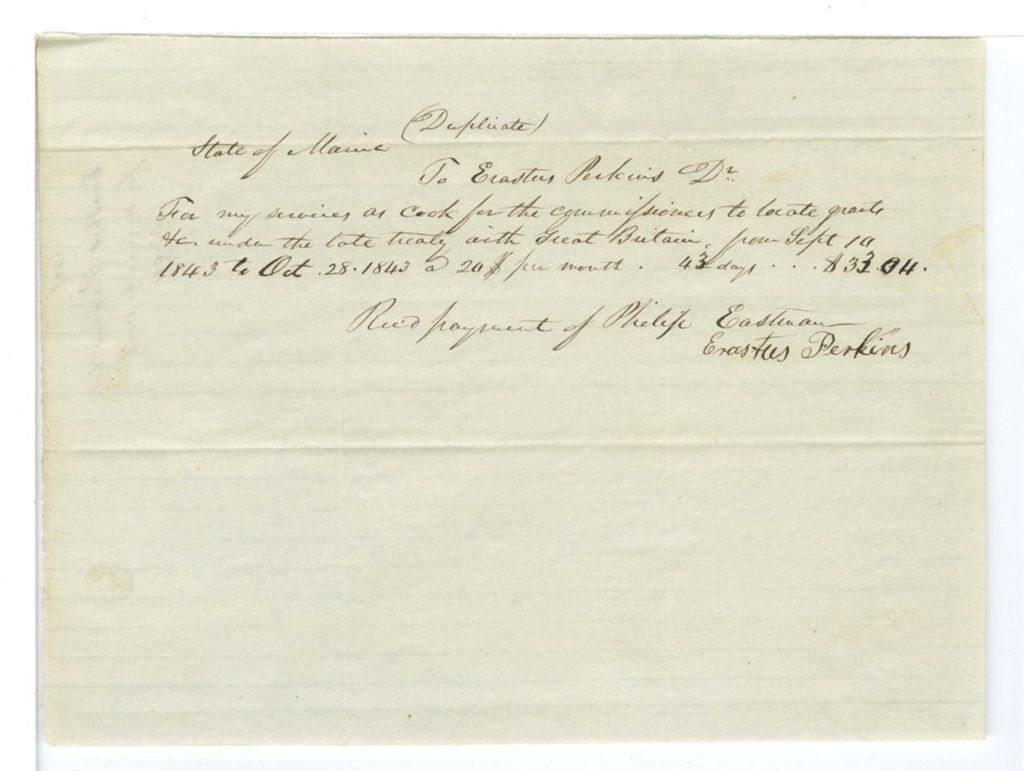 (Duplicate)
State of Maine
To Erastus Perkins Dr.
For my services as cook for the commissioners to locate grants
&c. under the late treaty with Great Britain, from Sept 10
1843 to Oct. 28. 1843 a 20 $ per month. 43 days . . . $33.04.
Rec'd payment of Philip Eastman
Erastus Perkins